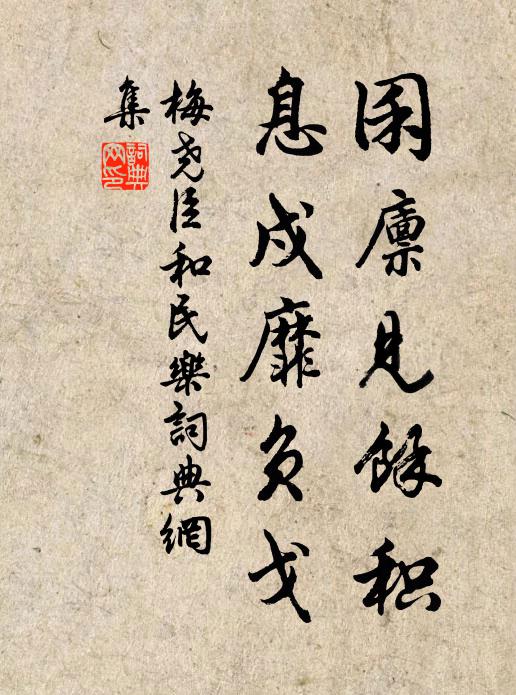 囷廪見餘积
息戍靡負戈
梅尧臣和民樂詞典網
集
詞典
网印